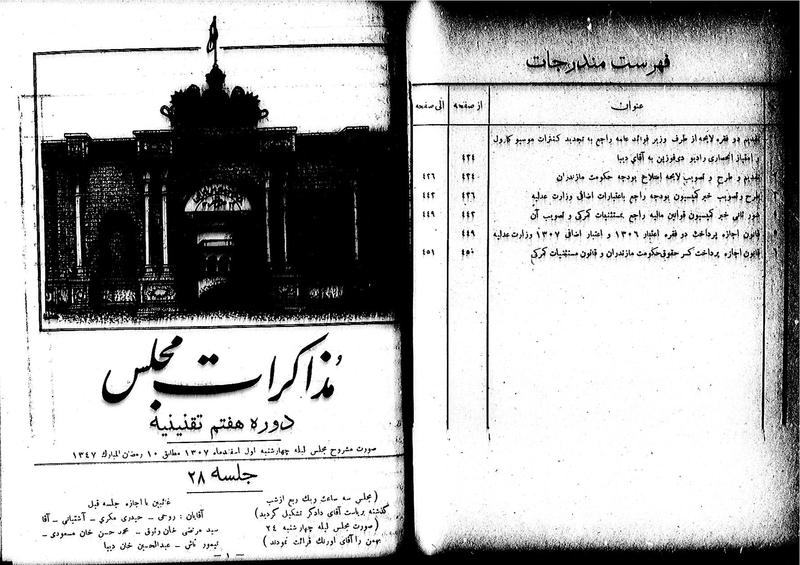 فهرست مندرجات
عنوان
از صفحه
الی صفحه
تقدیم دو فقره لایحه از طرف وزیر فوائد عامه راجع به تجدید کنترات موسیو کارول
و امتیاز انحصاری رادیو دی‌فوزین به آقای دیبا
۴۲۴
تقدیم و طرح و تصویب لایحه اصلاح بودجه حکومت مازندران
۴۲۴۰
۴۲۶
طرح و تصویب خبر کمیسیون بودجه راجع باعتبارات اضافی وزارت عدلیه
۴۳۶
۴۴۳
شور ثانی خبر کمیسیون قوانین مالیه راجع بمستثنیات گمرکی و تصویب آن
۴۴۳
۴۴۹
قانون اجازه پرداخت دو فقره اعتبار ۱۳۰۶ و اعتبار اضافی ۱۳۰۷ وزارت عدلیه
۴۴۹
قانون اجازه پرداخت کسر حقوق حکومت مازندران و قانون مستثنیات گمرکی
۴۵۰
۴۵۱
مذاکرات مجلس
دوره هفتم تقنینیه
صورت مشروح مجلس لیله چهارشنبه اول اسفندماه ۱۳۰۷ مطابق ۱۰ رمضان المبارک ۱۳۴۷
جلسه ۲۸
(مجلس سه ساعت و یک ربع از شب
گذشته بریاست آقای دادگر تشکیل گردید)
(صورت مجلس لیله چهارشنبه ۲۴
بهمن را آقای اورنگ قرائت نمودند)
غائبین با اجازه جلسه قبل
آقایان : روحی – حیدری مکری – آشتیانی – آقا
سید مرتضی خان وثوق – محمد حسن خان مسعودی –
تیمور تاش – عبدالحسین خان دیبا
– ۱ –